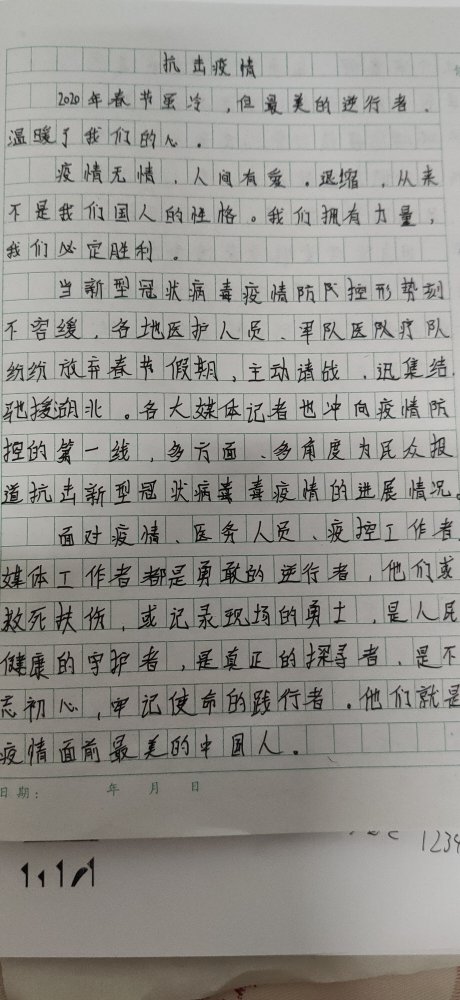 抗击疫情
2020年春节虽冷，但最美的逆行者，
温暖了我们的心。
疫情无情，人间有爱。退缩，从来
不是我们国人的性格。我们拥有力量，
我们必定胜利。
当新型冠状病毒疫情防控形势刻
不容缓，各地医护人员、军队医队疗队
纷纷放弃春节假期，主动请战，迅集结，
驰援湖北。各大媒体记者也冲向疫情防
控的第一线，多方面、多角度为民众报
道抗击新型冠状病毒毒疫情的进展情况。
面对疫情，医务人员、疫控工作者，
媒体工作者都是勇敢的逆行者，他们或
救死扶伤，或记录现场的勇士，是人民
健康的守护者，是真正的探寻者，是不
忘初心，牢记使命的践行者。他们就是
疫情面前最美的中国人。
日期： 年 月 日
1234